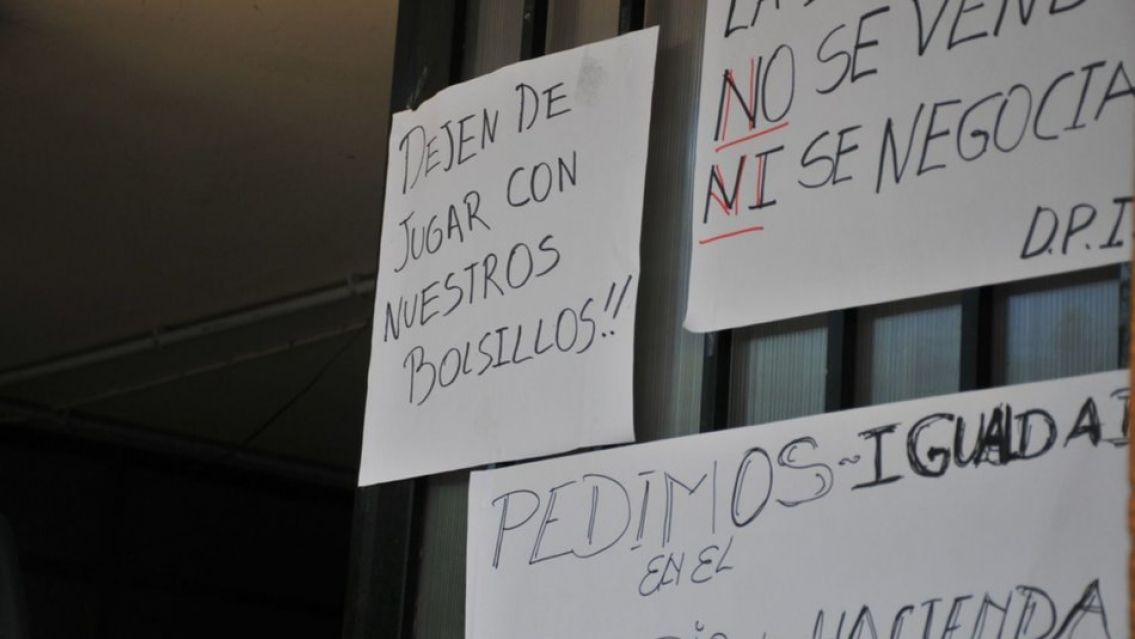 DEJEN DE
JUGAR CON
NUESTROS
BOLSILLOS!!
LA
NO SE VEND
NI SE NEGOCIA
D.P.I
PEDIMOS~IGUALDAD
EN EL
HACIENDA